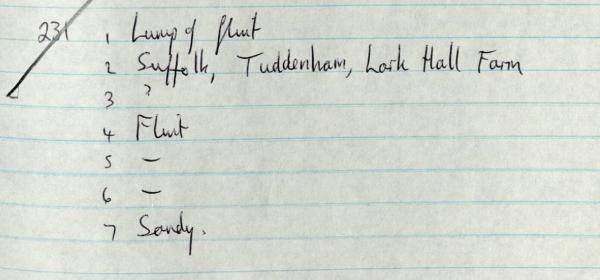 231 1 Lump of flint
2 Suffolk, Tuddenham, Lark Hall Farm
3 ?
4 Flint
5 –
6 –
7 Sandy.